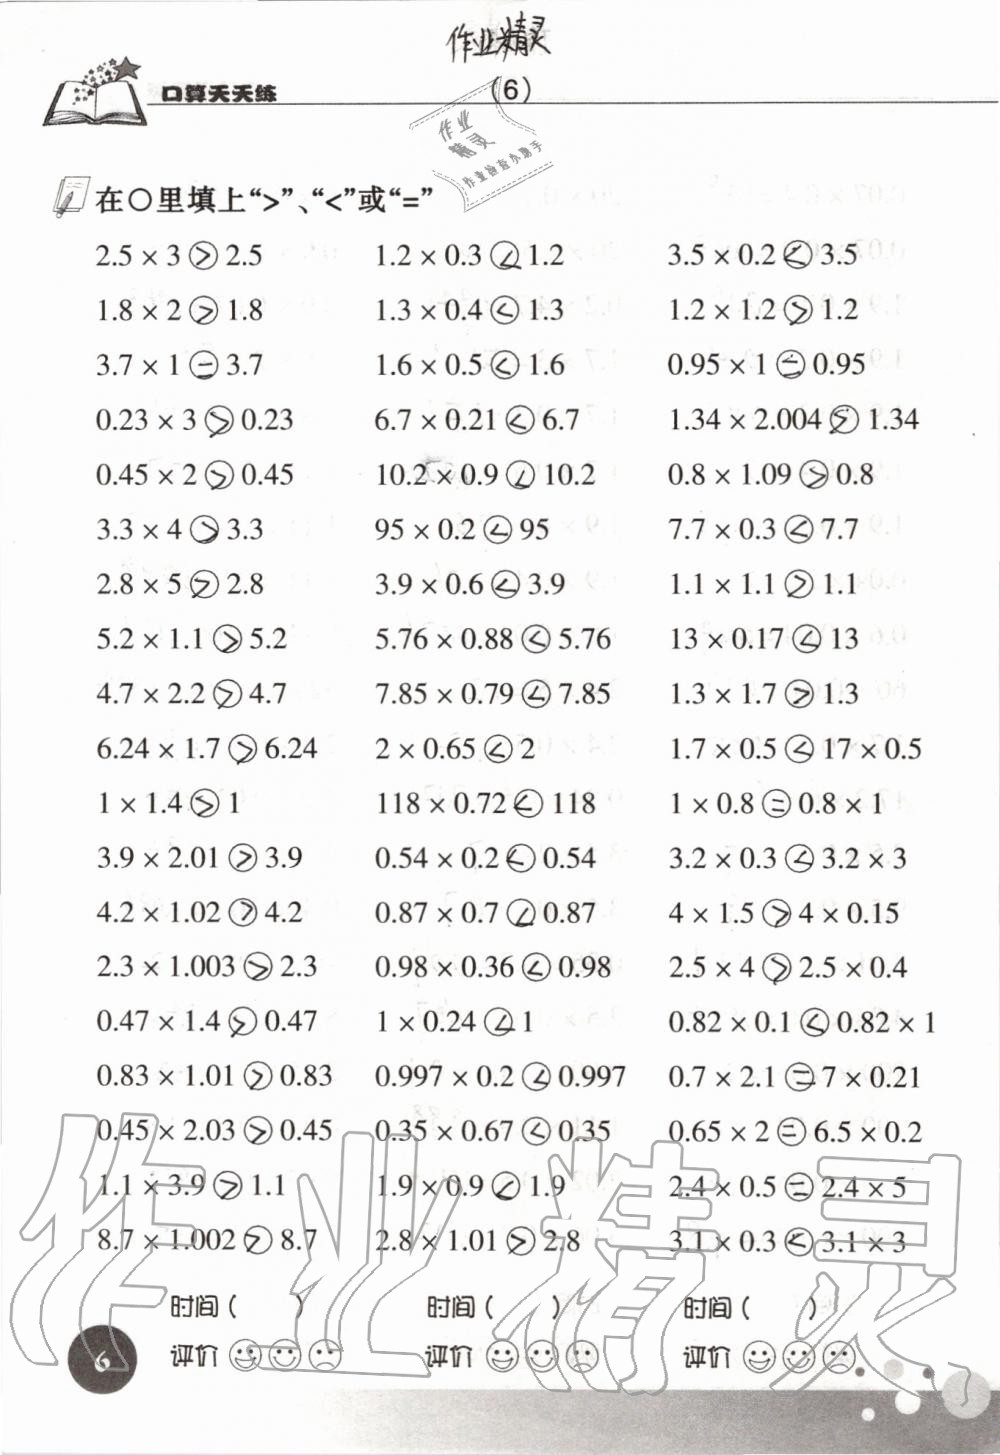 作业精灵
口算天天练
(6)
作业
精灵
作业检查小助手
在○里填上“>”、“<”或“=”
2.5 × 3 > 2.5 1.2 × 0.3 < 1.2 3.5 × 0.2 < 3.5
1.8 × 2 > 1.8 1.3 × 0.4 < 1.3 1.2 × 1.2 > 1.2
3.7 × 1 = 3.7 1.6 × 0.5 < 1.6 0.95 × 1 = 0.95
0.23 × 3 > 0.23 6.7 × 0.21 < 6.7 1.34 × 2.004 > 1.34
0.45 × 2 > 0.45 10.2 × 0.9 < 10.2 0.8 × 1.09 > 0.8
3.3 × 4 > 3.3 95 × 0.2 < 95 7.7 × 0.3 < 7.7
2.8 × 5 > 2.8 3.9 × 0.6 < 3.9 1.1 × 1.1 > 1.1
5.2 × 1.1 > 5.2 5.76 × 0.88 < 5.76 13 × 0.17 < 13
4.7 × 2.2 > 4.7 7.85 × 0.79 < 7.85 1.3 × 1.7 > 1.3
6.24 × 1.7 > 6.24 2 × 0.65 < 2 1.7 × 0.5 < 17 × 0.5
1 × 1.4 > 1 118 × 0.72 < 118 1 × 0.8 = 0.8 × 1
3.9 × 2.01 > 3.9 0.54 × 0.2 < 0.54 3.2 × 0.3 < 3.2 × 3
4.2 × 1.02 > 4.2 0.87 × 0.7 < 0.87 4 × 1.5 > 4 × 0.15
2.3 × 1.003 > 2.3 0.98 × 0.36 < 0.98 2.5 × 4 > 2.5 × 0.4
0.47 × 1.4 > 0.47 1 × 0.24 < 1 0.82 × 0.1 < 0.82 × 1
0.83 × 1.01 > 0.83 0.997 × 0.2 < 0.997 0.7 × 2.1 = 7 × 0.21
0.45 × 2.03 > 0.45 0.35 × 0.67 < 0.35 0.65 × 2 = 6.5 × 0.2
1.1 × 3.9 > 1.1 1.9 × 0.9 < 1.9 2.4 × 0.5 = 2.4 × 5
8.7 × 1.002 > 8.7 2.8 × 1.01 > 2.8 3.1 × 0.3 < 3.1 × 3
时间( ) 时间( ) 时间( )
评价 评价 评价
6
作业精灵